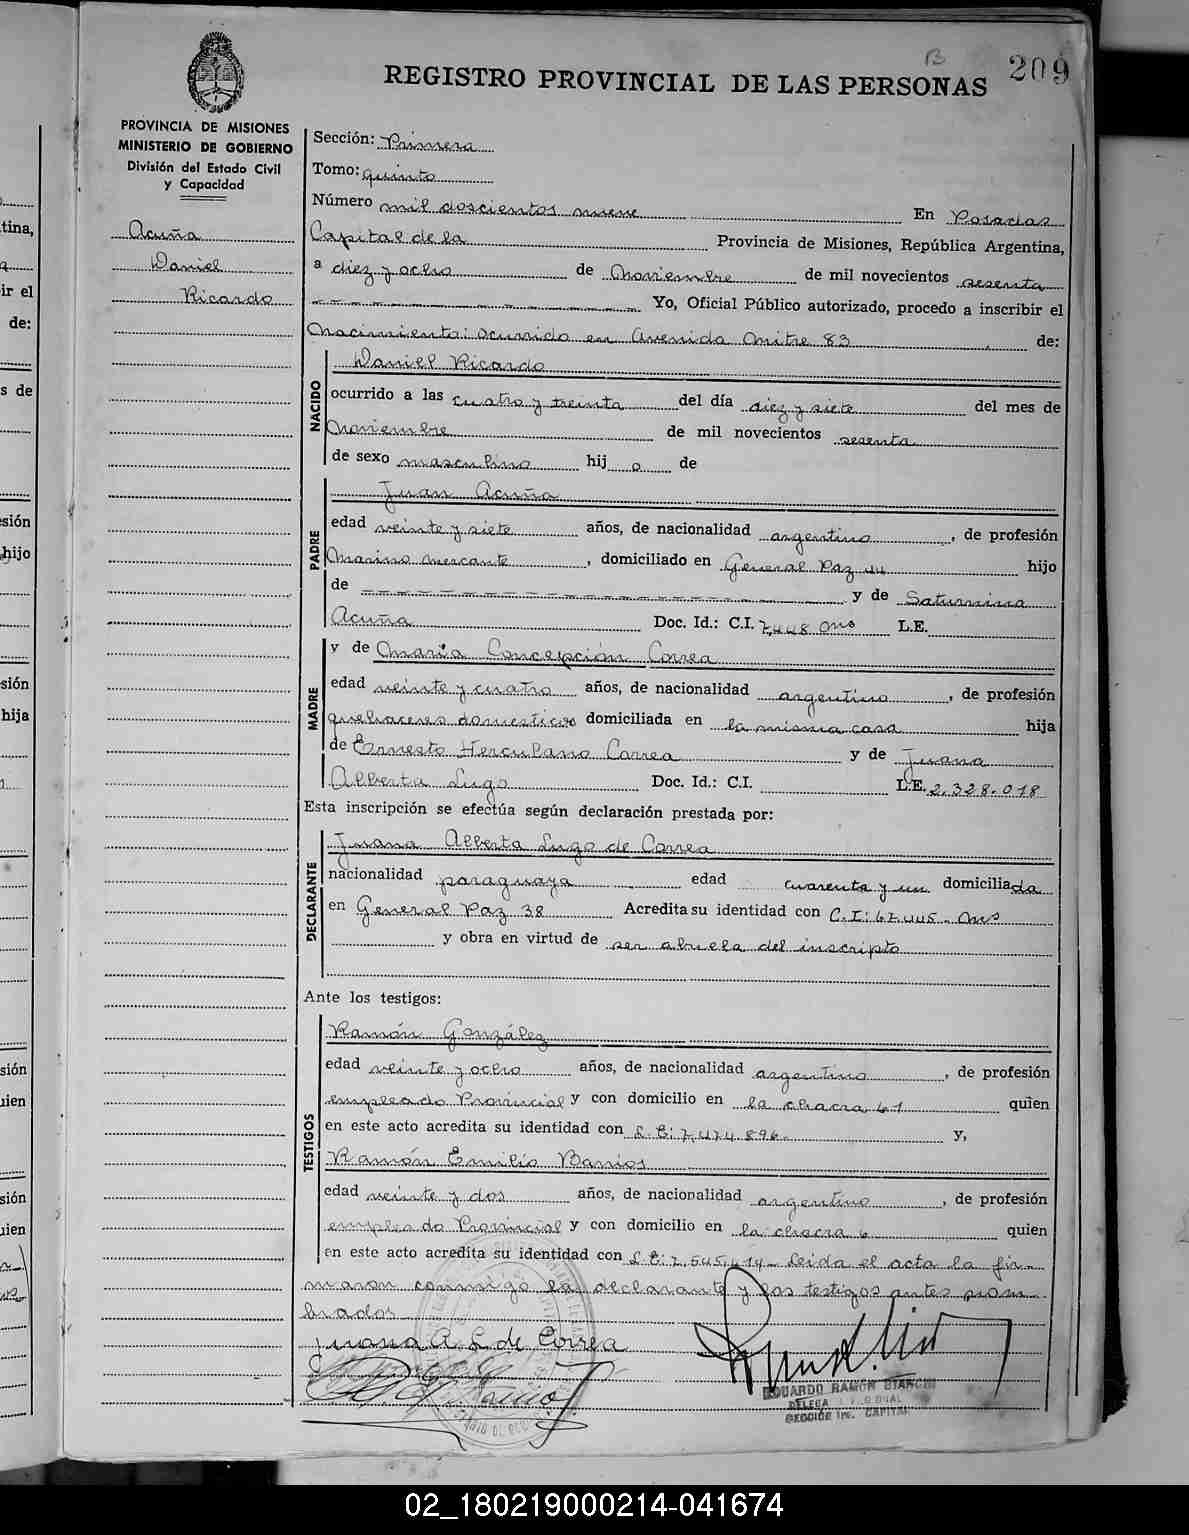 B
209
REGISTRO PROVINCIAL DE LAS PERSONAS
PROVINCIA DE MISIONES
MINISTERIO DE GOBIERNO
División del Estado Civil
y Capacidad
Acuña
Daniel
Ricardo
Sección: Primera
Tomo: quinto
Número mil doscientos nueve En Posadas
Capital de la Provincia de Misiones, República Argentina,
a diez y ocho de Noviembre de mil novecientos sesenta
Yo, Oficial Público autorizado, procedo a inscribir el
Nacimiento: ocurrido en Avenida Mitre 83 de:
NACIDO
Daniel Ricardo
ocurrido a las cuatro y treinta del día diez y siete del mes de
Noviembre de mil novecientos sesenta
de sexo masculino hij o de
PADRE
Juan Acuña
edad veinte y siete años, de nacionalidad argentino, de profesión
Marino mercante, domiciliado en General Paz 44 hijo
de y de Saturnina
Acuña Doc. Id.: C.I. 7.448 Mns L.E.
MADRE
y de Maria Concepción Correa
edad veinte y cuatro años, de nacionalidad argentino, de profesión
quehaceres domesticos domiciliada en la misma casa hija
de Ernesto Herculano Correa y de Juana
Alberta Lugo Doc. Id.: C.I. L.E. 2.328.018
Esta inscripción se efectúa según declaración prestada por:
DECLARANTE
Juana Alberta Lugo de Correa
nacionalidad paraguaya edad cuarenta y un domiciliada
en General Paz 38 Acredita su identidad con C.I: 67.445. Mns
y obra en virtud de ser abuela del inscripto
Ante los testigos:
TESTIGOS
Ramón González
edad veinte y ocho años, de nacionalidad argentino, de profesión
empleado Provincial y con domicilio en la chacra 61 quien
en este acto acredita su identidad con L.E: 7.474.896. y,
Ramón Emilio Barrios
edad veinte y dos años, de nacionalidad argentino, de profesión
empleado Provincial y con domicilio en la chacra 6 quien
en este acto acredita su identidad con L.E: 7.545.414- Leida el acta la fir-
maron conmigo la declarante y los testigos antes nom-
brados
Juana A. L. de Correa
EDUARDO RAMÓN BIANCHI
SECCIÓN 1ra. CAPITAL
02_180219000214-041674